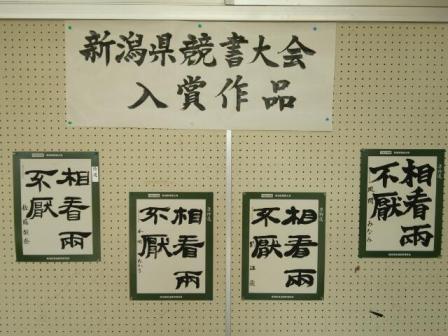 新潟県競書大会
入賞作品
相看兩
不厭
相看兩
不厭
相看兩
不厭
相看兩
不厭